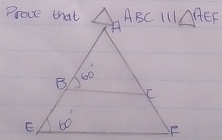 Prove that △ABC ||| △AEF
A
B 60° C
E 60° F